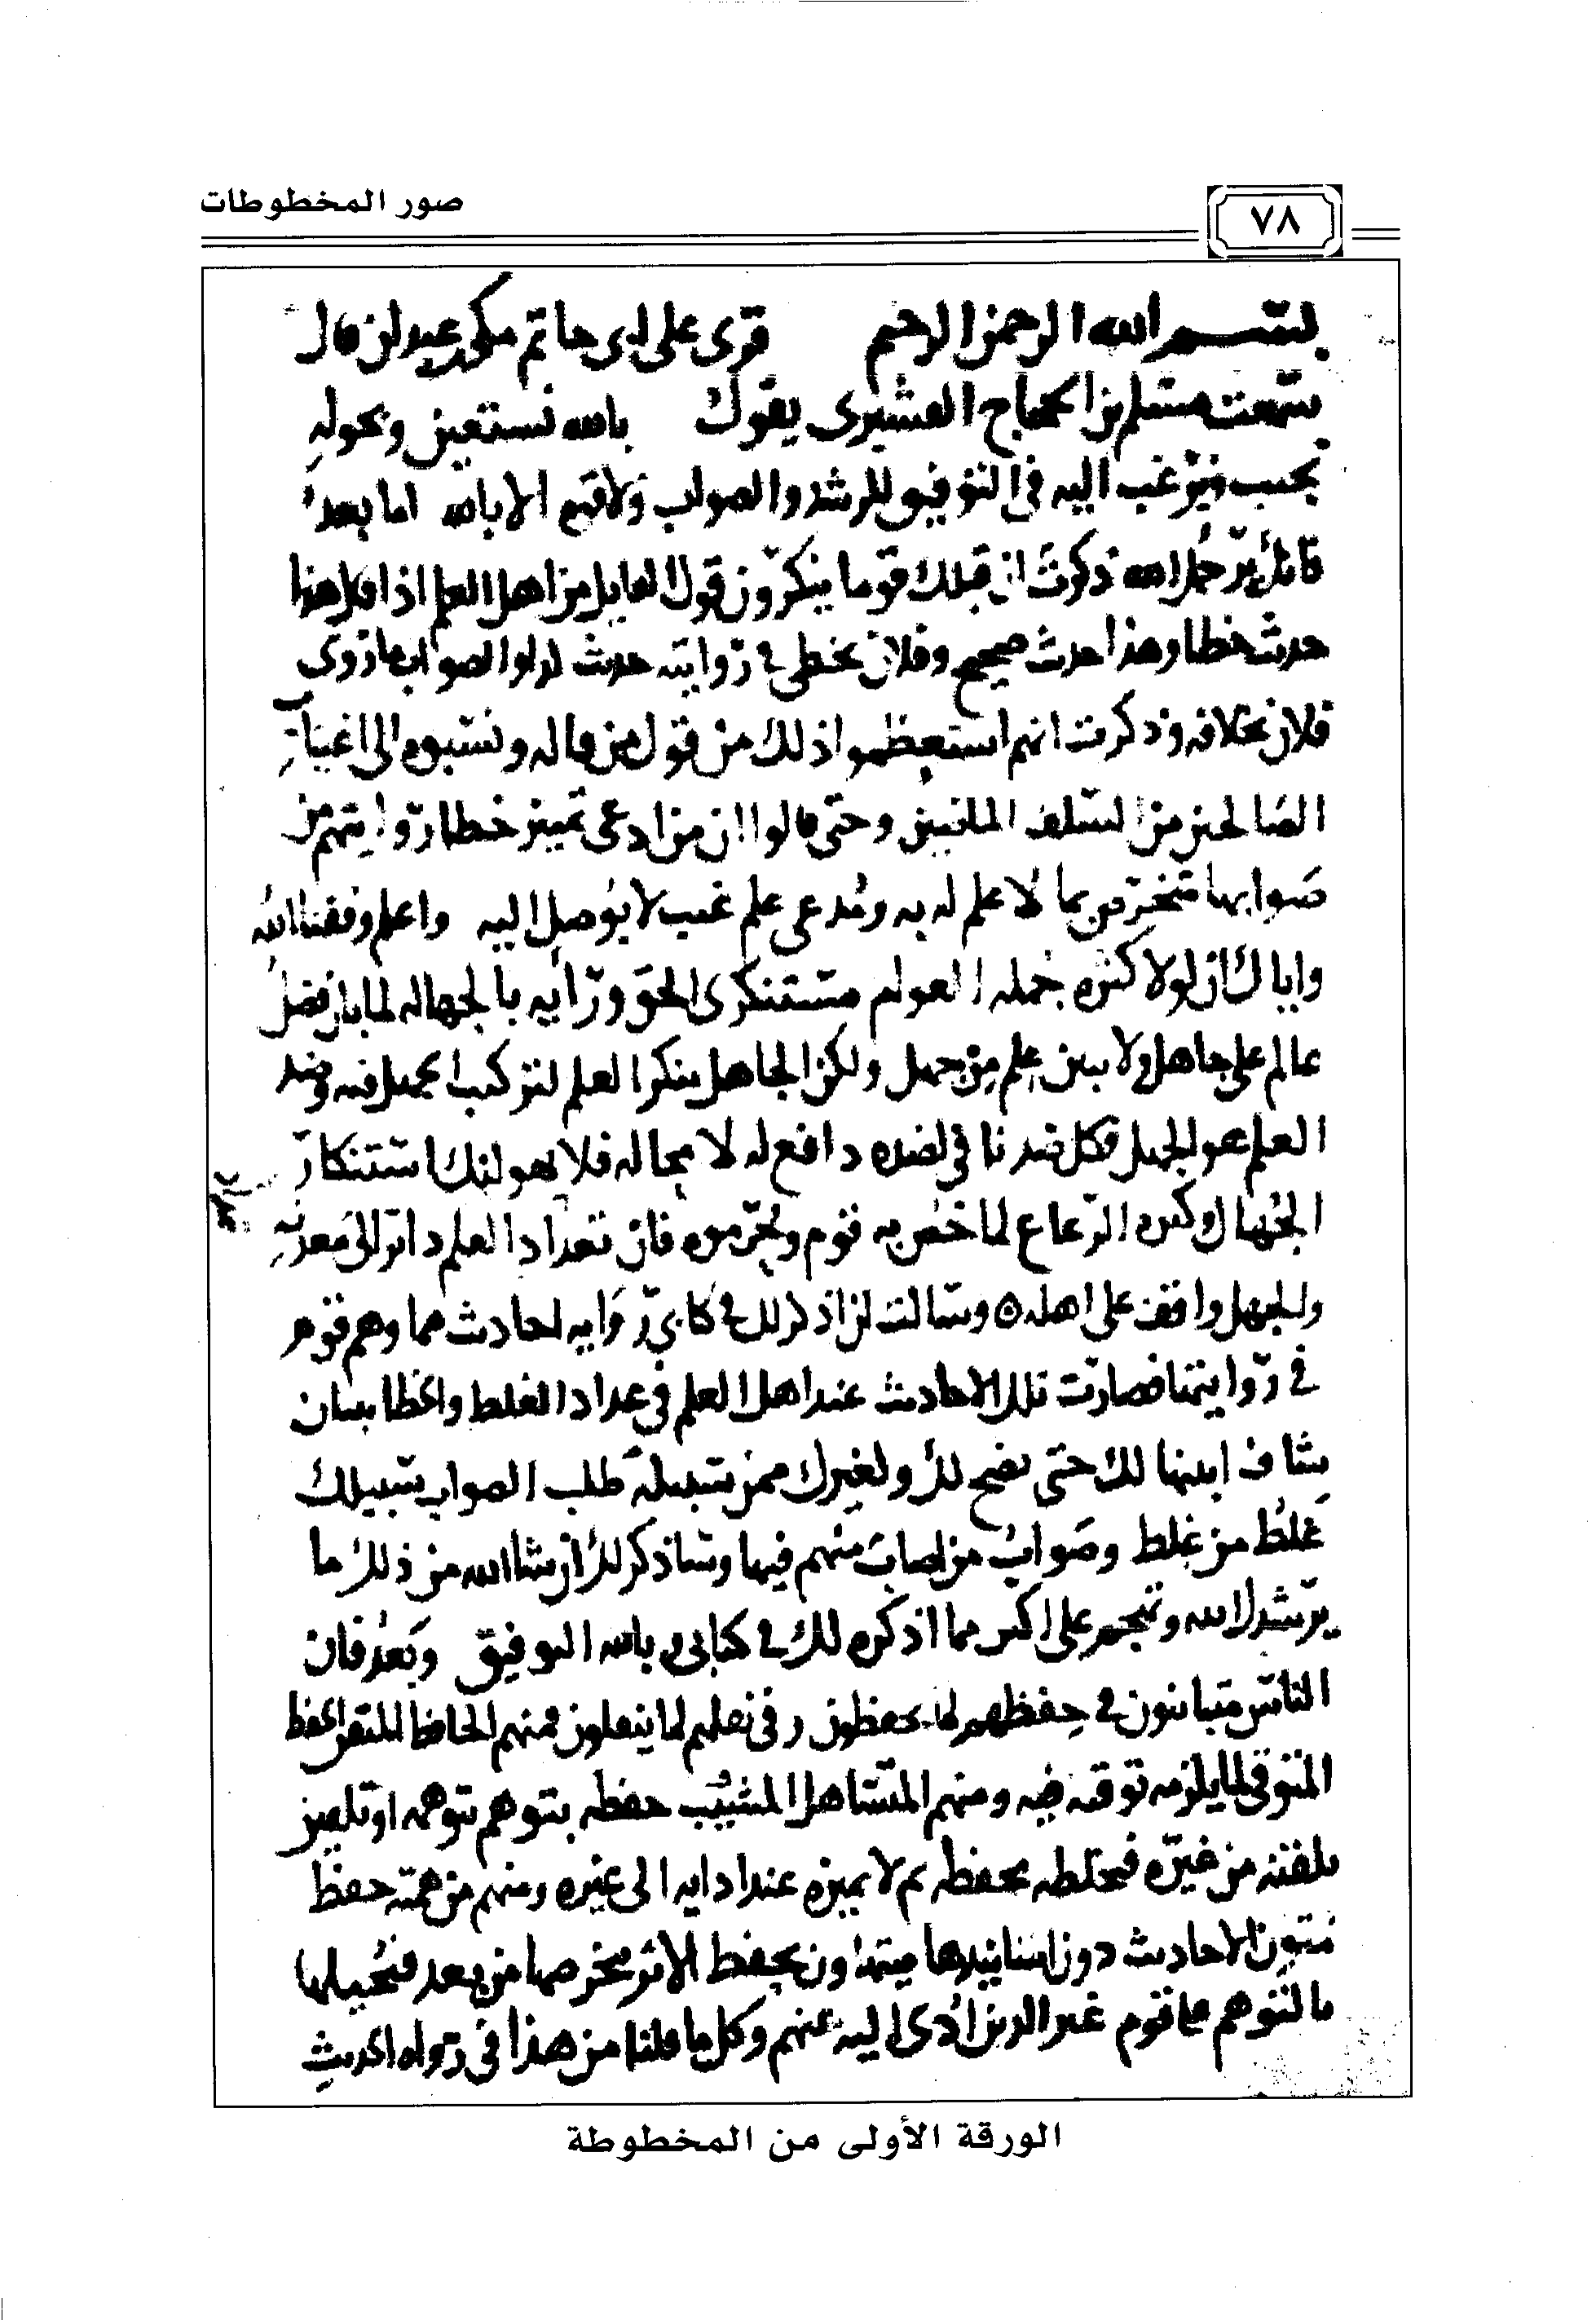 ٧٨
صور المخطوطات
بسم الله الرحمن الرحيم قرى على ابى حاتم مكى بن عبدان قال
سمعت مسلم بن الحجاج القشيرى يقول بالله نستعين وبحوله
نجيب من رغب اليه فى التوفيق للرشد والصواب ولا قوة الا بالله اما بعد
فانك يرحمك الله ذكرت ان قبلك قوما ينكرون قول القايل من اهل العلم اذا قال هذا
حديث خطا وهذا حديث صحيح وفلان يخطى فى روايته حديث كذا والصواب ما روى
فلان بخلافه وذكرت انهم استعظموا ذلك من قول من قاله ونسبوه الى اغتياب
الصالحين من السلف الماضيين وحتى قالوا ان من ادعى تمييز خطا روايتهم من
صوابها متخرص بما لا علم له به ومدعى علم غيب لا يوصل اليه واعلم وفقنا الله
واياك ان لولا كثره جهله العوام مستنكرى الحق ورايه بالجهاله لما بان فضل
عالم على جاهل ولا تبين علم من جهل ولكن الجاهل ينكر العلم لتركيب الجهل فيه وضد
العلم هو الجهل فكل ضد نافى لضده دافع له لا محاله فلا يهولنك استنكار
الجهال وكثره الرعاع لما خص به قوم وحرموه فان تعداد العلم داير الى معدنه
والجهل واقف على اهله ٥ وسالت ان اذكر لك فى كتابى روايه احاديث مما وهم قوم
فى روايتها فصارت تلك الاحاديث عند اهل العلم فى عداد الغلط والخطا ببيان
شاف ابينها لك حتى يضح لك ولغيرك ممن سبيله طلب الصواب سبيلك
غلط من غلط وصواب من اصاب منهم فيها وساذكر لك ان شا الله من ذلك ما
يرشدك الله وتهجم على اكثر مما اذكره لك فى كتابى وبالله التوفيق وبعد فان
الناس متباينون فى حفظهم لما يحفظون وفى نقلهم لما ينقلون فمنهم الحافظ المتقن الحفظ
المتوقى لما يلزمه توقيه فيه ومنهم المتساهل المشيب حفظه بتوهم يتوهمه او تلقين
يلقنه من غيره فيخلطه بحفظه ثم لا يميزه عند ادايه الى غيره ومنهم من همته حفظ
متون الاحاديث دون اسانيدها فيتهاون بحفظ الاثر يتخرصها من بعد فيحيلها
بالتوهم على قوم غير الذين ادى اليه عنهم وكل ما قلنا من هذا فى رواه الحديث
الورقة الأولى من المخطوطة